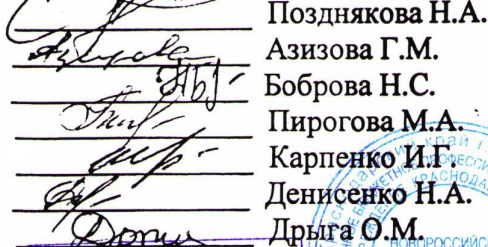 Позднякова Н.А.
Азизова Г.М.
Боброва Н.С.
Пирогова М.А.
Карпенко И.Г.
Денисенко Н.А.
Дрыга О.М.
край
НОВОРОССИЙС